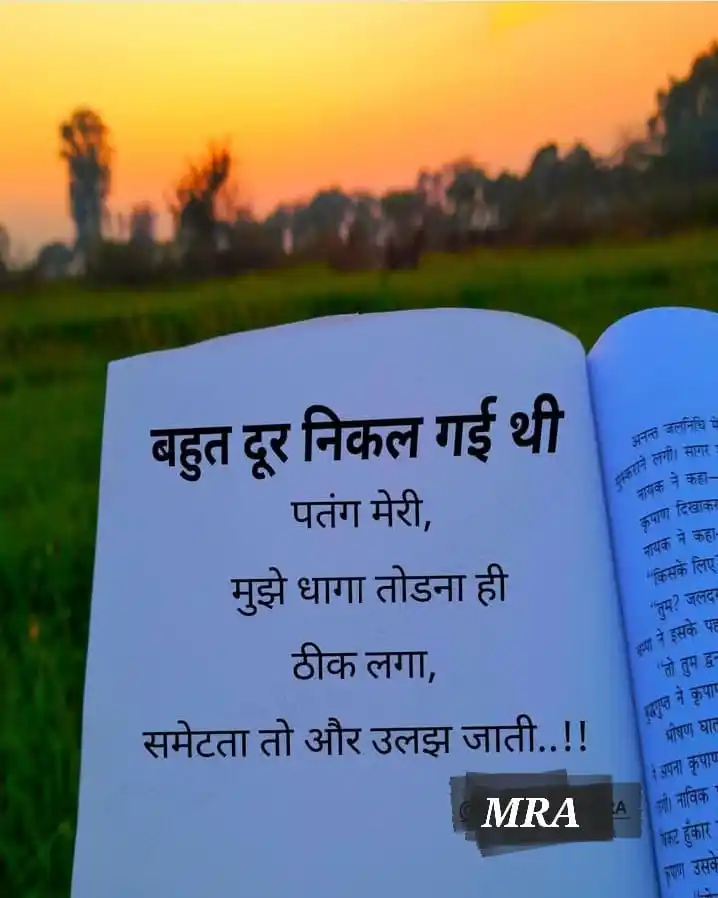 बहुत दूर निकल गई थी
पतंग मेरी,
मुझे धागा तोडना ही
ठीक लगा,
समेटता तो और उलझ जाती..!!
MRA
अनन्त जलनिधि में
मुस्कराने लगी। सागर
नायक ने कहा—
कृपाण दिखाकर
नायक ने कहा-
"किसके लिए
"तुम? जलद
ने इसके पह
"तो तुम
बुद्धगुप्त ने कृपा
भीषण घात
अपना कृपाण
नाविक
हुँकार
कृपाण उसके